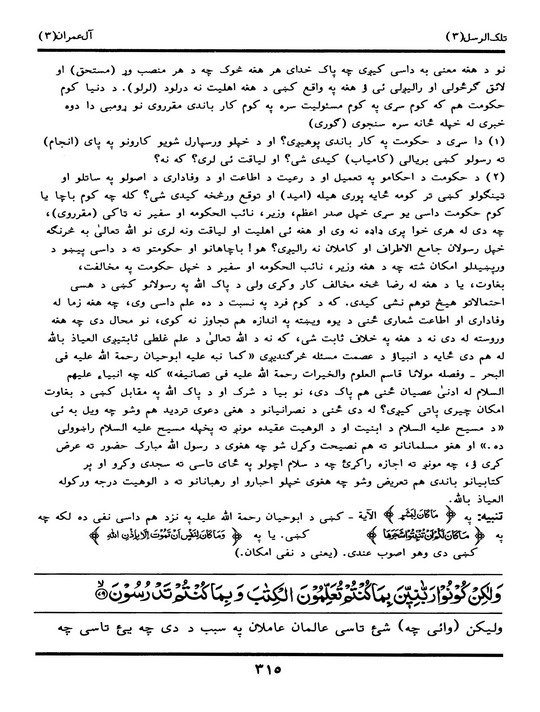 تلک الرسل (۳) آل عمران (۳)
نو د هغه معنی به داسی کیږی چه پاک خدای هر هغه څوک چه د هر منصب وړ (مستحق) او
لائق گرځولی او رالیږلی ئی ؤ هغه په واقع کښی د هغه اهلیت نه درلود (لرلو). د دنیا کوم
حکومت هم که کوم سړی په کوم مسئولیت سره په کوم کار باندی مقرروی نو ړومبی دا دوه
خبری له خپله ځانه سره سنجوی (گوری)
(۱) دا سړی د حکومت په کار باندی پوهیږی؟ او د خپلو ورسپارل شویو کارونو په پای (انجام)
ته رسولو کښی بریالی (کامیاب) کیدی شی؟ او لیاقت ئی لری؟ که نه؟
(۲) د حکومت د احکامو په تعمیل او د رعیت د اطاعت او د وفاداری د اصولو په ساتلو او
ټینگولو کښی تر کومه ځایه پوری هیله (امید) او توقع ورڅخه کیدی شی؟ کله چه کوم باچا یا
کوم حکومت داسی یو سړی خپل صدر اعظم، وزیر، نائب الحکومه او سفیر نه ټاکی (مقرروی)،
چه دی له هری خوا پری ډاډه نه وی او هغه ئی اهلیت او لیاقت ونه لری نو الله تعالیٰ به څرنگه
خپل رسولان جامع الاطراف او کاملان نه رالیږی؟ هو! باچاهانو او حکومتو ته د داسی پیښو د
ورپښیدلو امکان شته چه د هغه وزیر، نائب الحکومه او سفیر د خپل حکومت په مخالفت،
بغاوت، یا د هغه له رضا څخه مخالف کار وکړی ولی د پاک الله په رسولانو کښی د هسی
احتمالاتو هیڅ توهم نشی کیدی. که د کوم فرد په نسبت د ده علم داسی وی، چه هغه زما له
وفاداری او اطاعت شعاری څنی د یوه ویښته په اندازه هم تجاوز نه کوی، نو محال دی چه هغه
وروسته له دی نه د هغه په خلاف ثابت شی، که نه د الله تعالیٰ د علم غلطی ثابتیږی العیاذ بالله
له هم دی ځایه د انبیاؤ د عصمت مسئله څرگندیږی «کما نبه علیه ابوحیان رحمة الله علیه فی
البحر ـ وفصله مولانا قاسم العلوم والخیرات رحمة الله علیه فی تصانیفه» کله چه انبیاء علیهم
السلام له ادنیٰ عصیان څنی هم پاک دی، نو بیا د شرک او د پاک الله په مقابل کښی د بغاوت
امکان چیری پاتی کیږی؟ له دی څنی د نصرانیانو د هغی دعوی تردید هم وشو چه ویل به ئی
«د مسیح علیه السلام د ابنیت او د الوهیت عقیده مونږ ته پخپله مسیح علیه السلام راښوولی
ده.» او هغو مسلمانانو ته هم نصیحت وکړل شو چه هغوی د رسول الله مبارک حضور ته عرض
کړی ؤ، چه مونږ ته اجازه راکړئ چه د سلام اچولو په ځای تاسی ته سجدی وکړو او پر
کتابیانو باندی هم تعریض وشو چه هغوی خپلو احبارو او رهبانانو ته د الوهیت درجه ورکوله
العیاذ بالله.
تنبیه: په ﴿ مَاکَانَ لِبَشَرٍ ﴾ الآیة ـ کښی د ابوحیان رحمة الله علیه په نزد هم داسی نفی ده لکه چه
په ﴿ مَاکَانَ لَکُمْ اَنْ تُنْۢبِتُوْا شَجَرَهَا ﴾ کښی. یا په ﴿ وَمَاکَانَ لِنَفْسٍ اَنْ تَمُوْتَ اِلَّا بِاِذْنِ اللهِ ﴾
کښی دی وهو اصوب عندی. (یعنی د نفی امکان.)
وَلٰکِنْ کُوْنُوْا رَبّٰنِیّٖنَ بِمَا کُنْتُمْ تُعَلِّمُوْنَ الْکِتٰبَ وَبِمَا کُنْتُمْ تَدْرُسُوْنَ ﴿۷۹﴾
ولیکن (وائی چه) شئ تاسی عالمان عاملان په سبب د دی چه یئ تاسی چه
۳۱۵